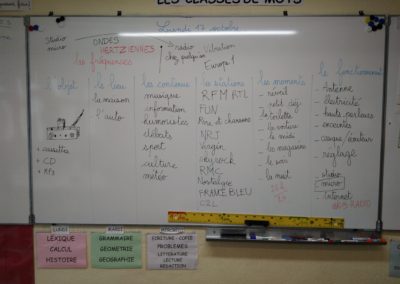 LES CLASSES DE MOTS
Lundi 17 octobre
Studio
micro
ONDES
HERTZIENNES
les fréquences
radio
chez quelqu'un
Vibration
Europe 1
l'objet
cassettes
CD
MP3
le lieu
la maison
l'auto
les contenus
musique
information
humoristes
débats
sport
culture
météo
les stations
RFM RTL
FUN
Rire et chansons
NRJ
Virgin
skyrock
RMC
Nostalgie
FRANCE BLEU
les moments
réveil
petit déj
la toilette
la voiture
le midi
les magasins
le soir
la nuit
le fonctionnement
Antenne
électricité
hauts parleurs
enceintes
casque/écouteur
réglages
studio
micro
Internet
LUNDI
LEXIQUE
CALCUL
HISTOIRE
MARDI
GRAMMAIRE
GEOMETRIE
GEOGRAPHIE
MERCREDI
ECRITURE - COPIE
PROBLEMES
LITTERATURE
LECTURE
REDACTION